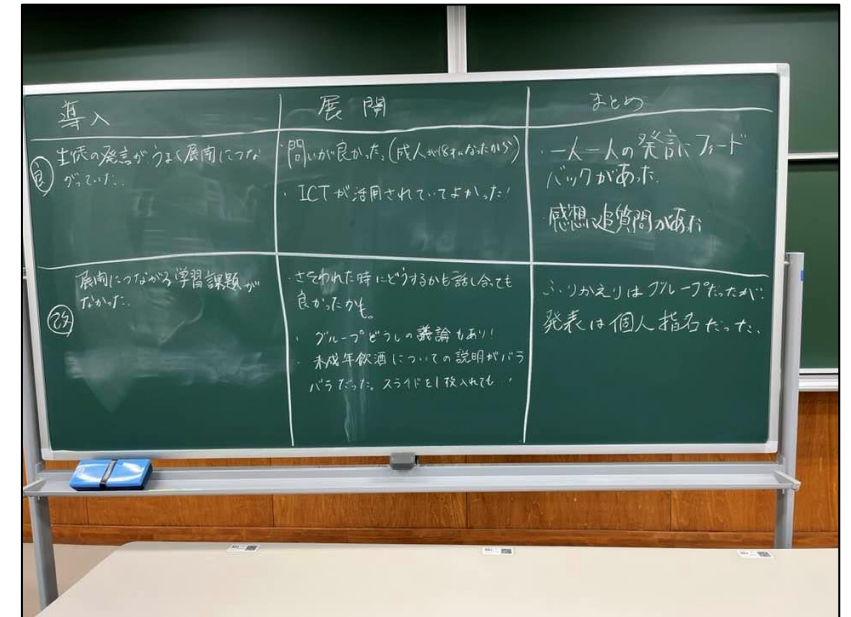 導入
展開
まとめ
良
生徒の発言がうまく展開につな
がっていた。
・問いが良かった。(成人が18才になったから)
・ICTが活用されていてよかった!
・一人一人の発言にフィード
バックがあった。
・感想に追質問があった
改
展開につながる学習課題が
なかった。
・さそわれた時にどうするかも話し合っても
良かったかも。
・グループどうしの議論もあり!
・未成年飲酒についての説明がバラ
バラだった。スライドを1枚入れても…!
ふりかえりはグループだったが、
発表は個人指名だった。